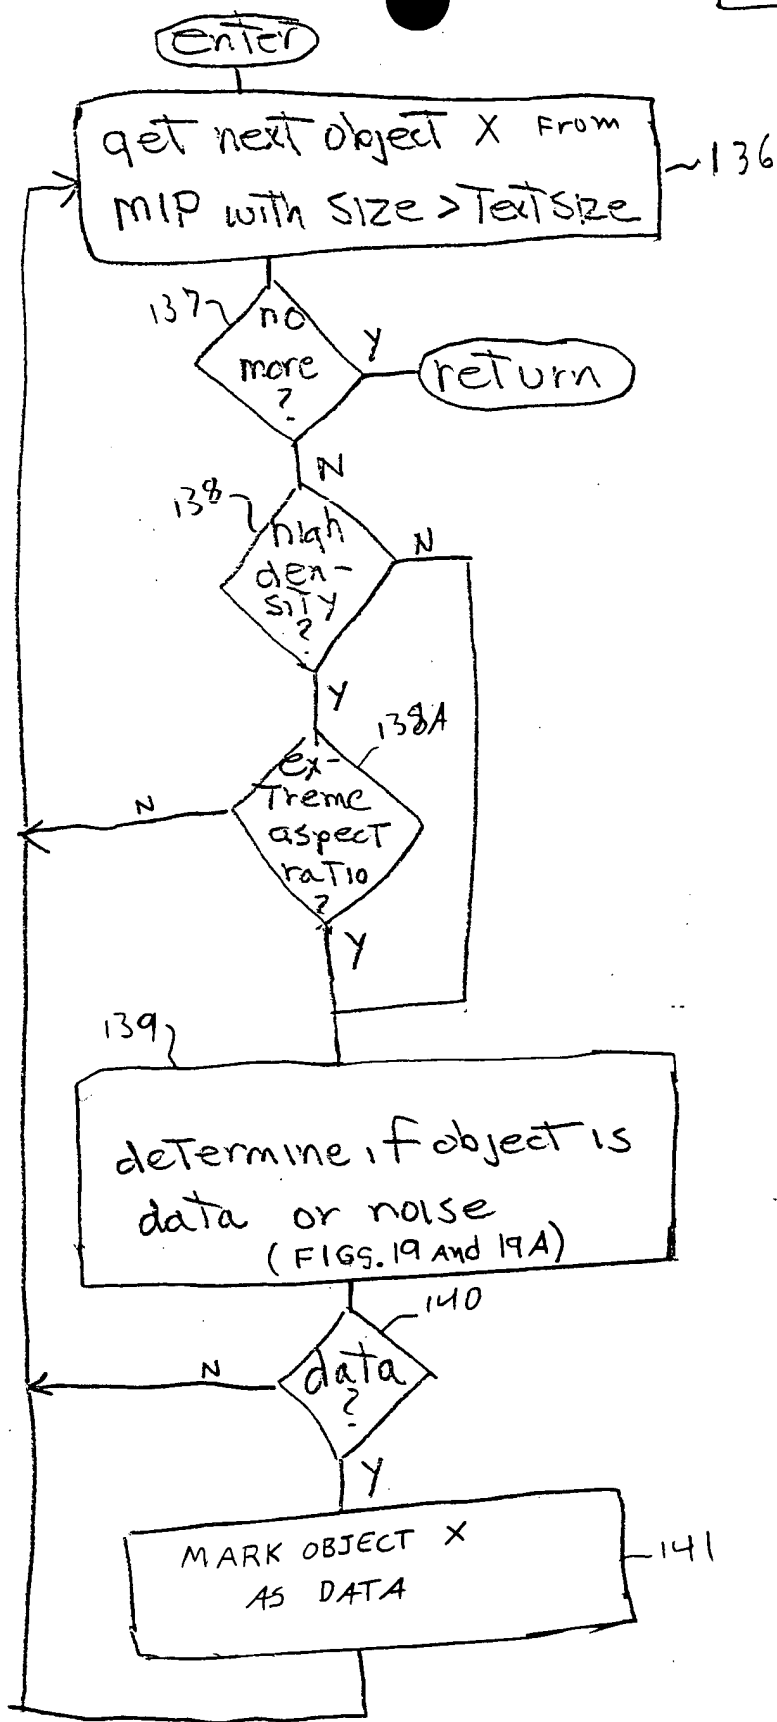 enter
get next object X From
MIP with size > Textsize
136
137
no
more
?
Y
return
N
138
high
den-
sity
?
N
Y
138A
ex-
treme
aspect
ratio
?
N
Y
139
determine if object is
data or noise
(FIGS. 19 And 19A)
140
data
?
N
Y
MARK OBJECT X
AS DATA
141